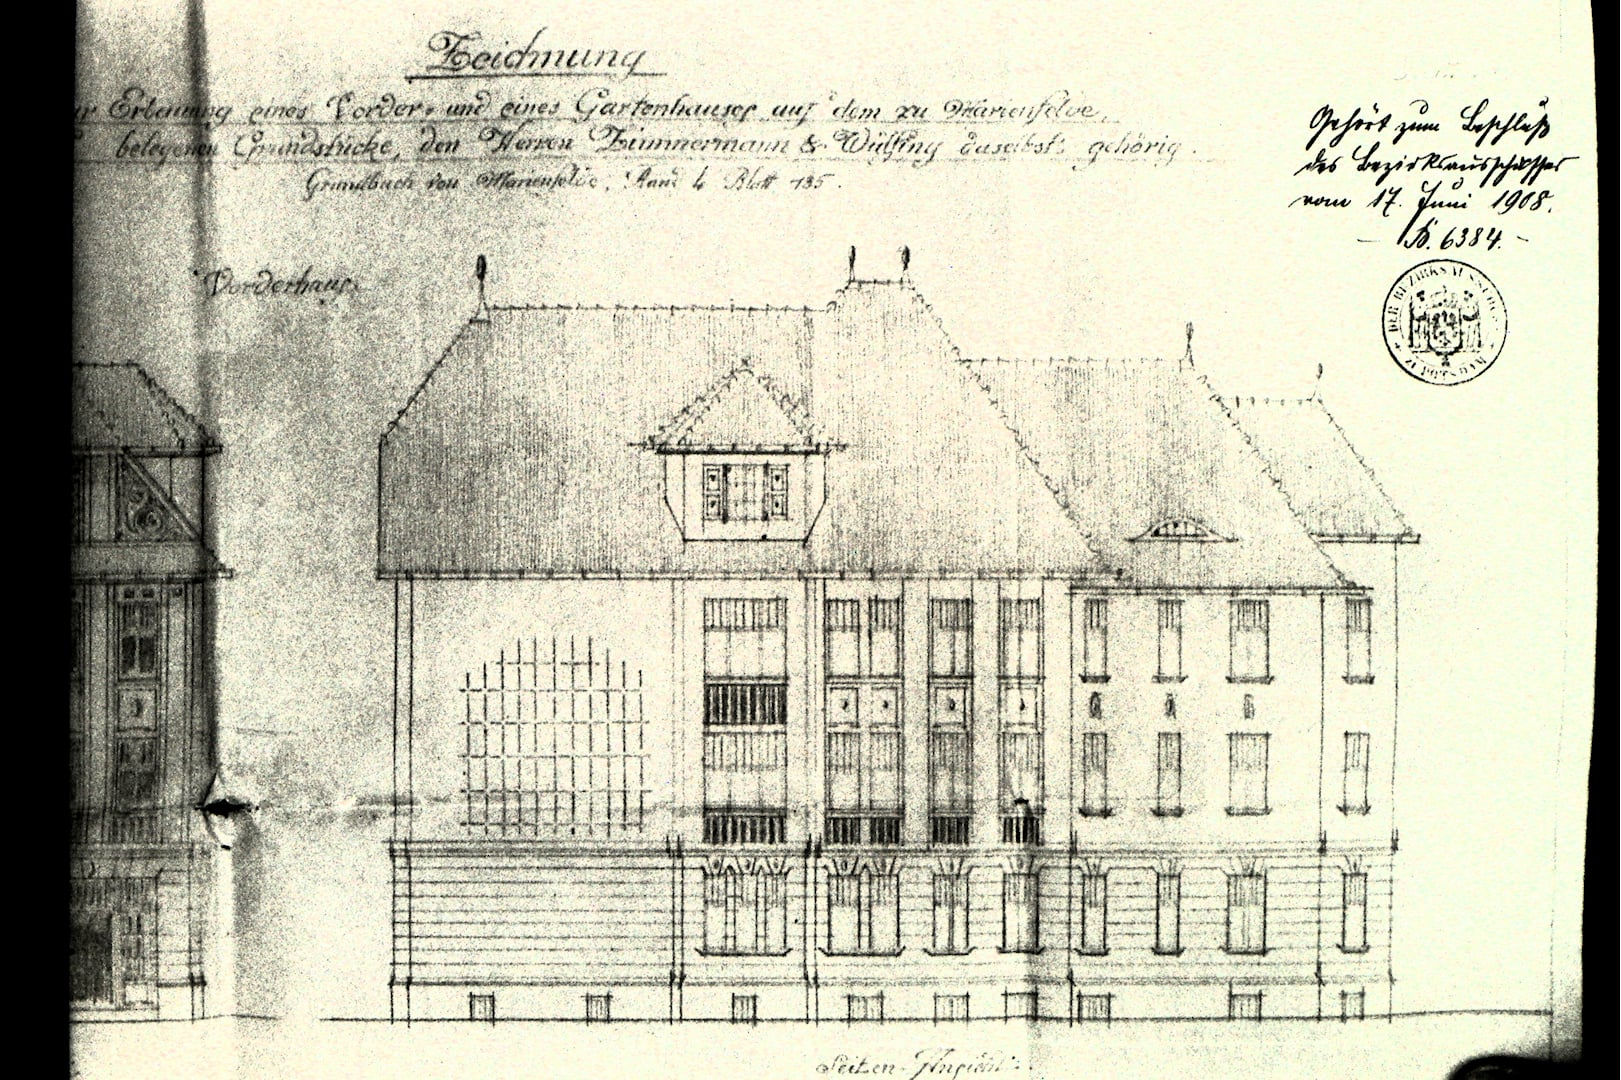 Zeichnung
ur Erbauung eines Vorder- und eines Gartenhauses auf dem zu Marienfelde,
belegenen Grundstücke, den Herren Zimmermann & Wülfing daselbst gehörig.
Grundbuch von Marienfelde, Band 4 Blatt 135.
Gehört zum Beschluß
des Bezirksausschusses
vom 17. Juni 1908.
B. 6384.
DER BEZIRKSAUSSCHUSS
ZU POTSDAM
Vorderhaus
Seiten-Ansicht